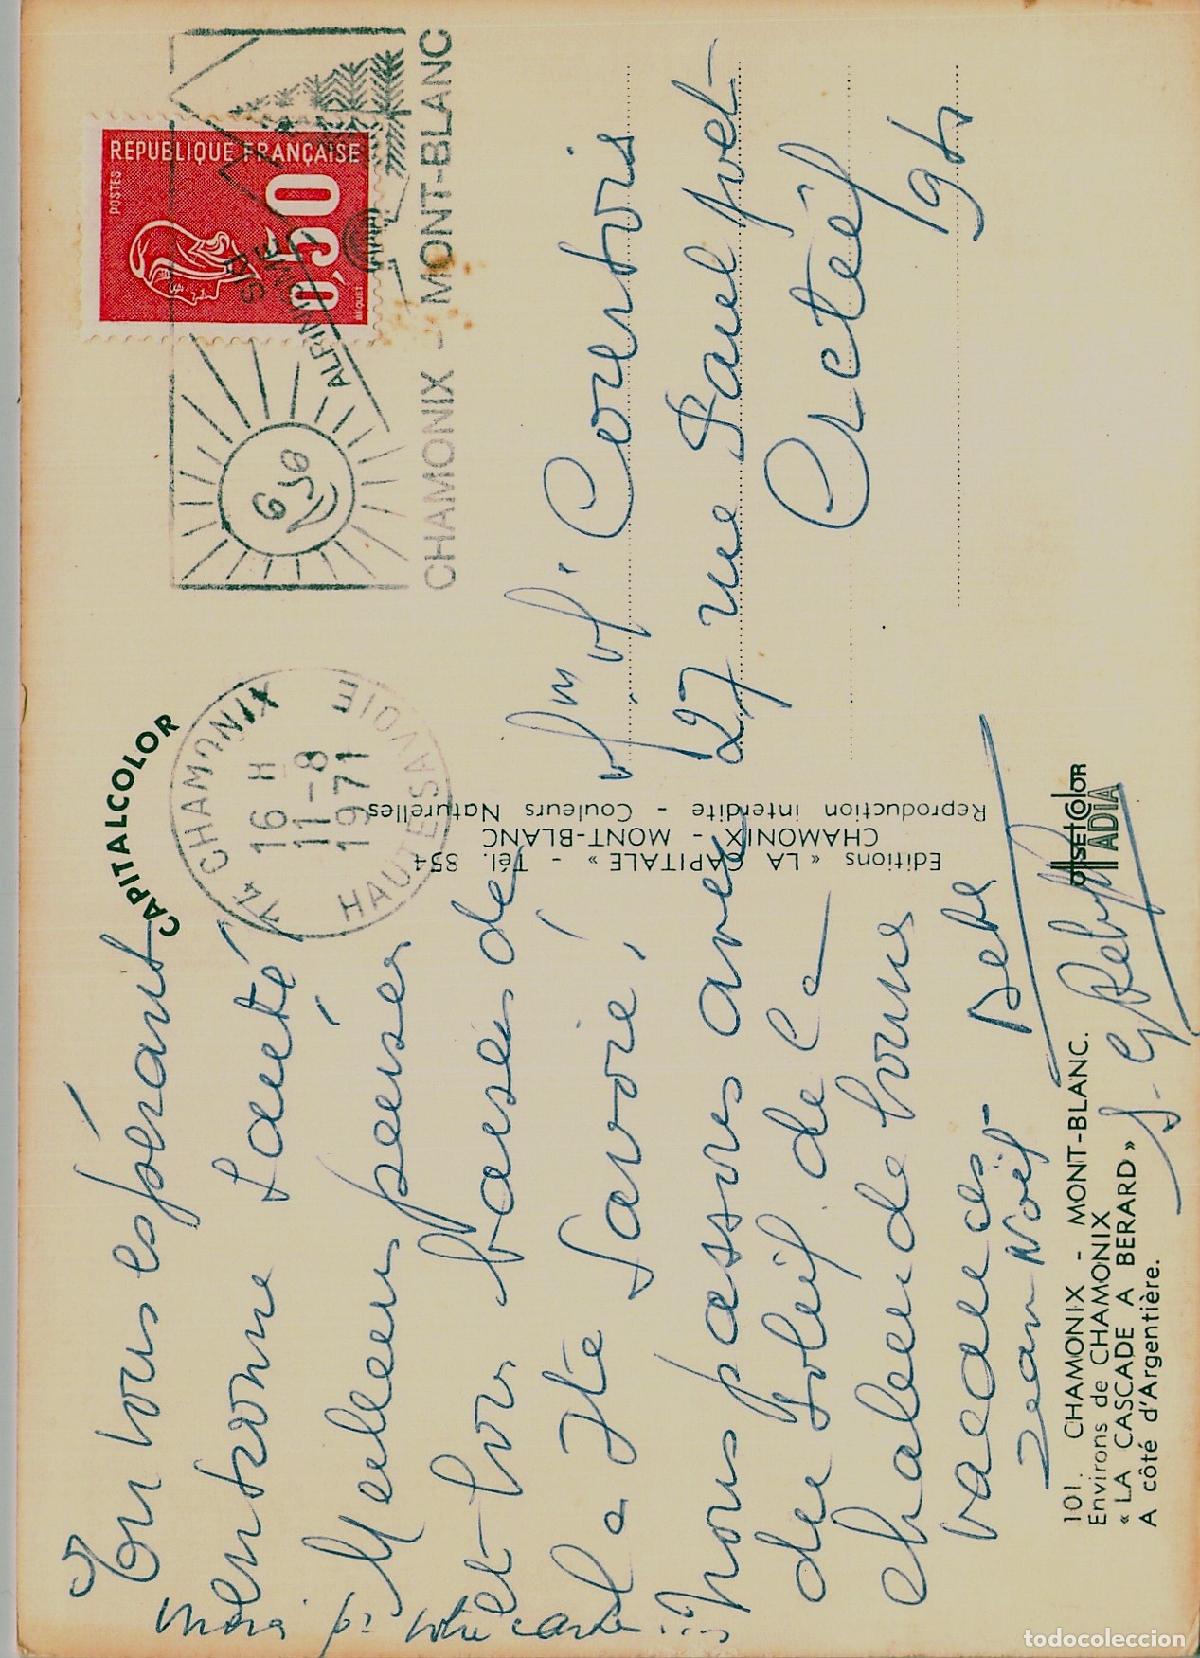 En vous espérant
en bonne Santé
Meilleurs pensées
et bons baisers de
la Hte Savoie,
nous passons avec
du Soleil de la
chaleur de bonnes
vacances
Jean Noël
Merci pr votre carte...
CAPITALCOLOR
74 CHAMONIX
16 H
11-8
1971
HAUTE SAVOIE
ALPINISME
CHAMONIX - MONT-BLANC
REPUBLIQUE FRANÇAISE
POSTES
0,50
BEQUET
Mr Me. Corentois
27 rue Paul
Créteil
94
Editions « LA CAPITALE » - Tél. 354
CHAMONIX - MONT-BLANC
Reproduction interdite - Couleurs Naturelles
OFFSETCOLOR
ADIA
101. CHAMONIX - MONT-BLANC.
Environs de CHAMONIX
« LA CASCADE A BERARD »
A côté d'Argentière.
todocoleccion